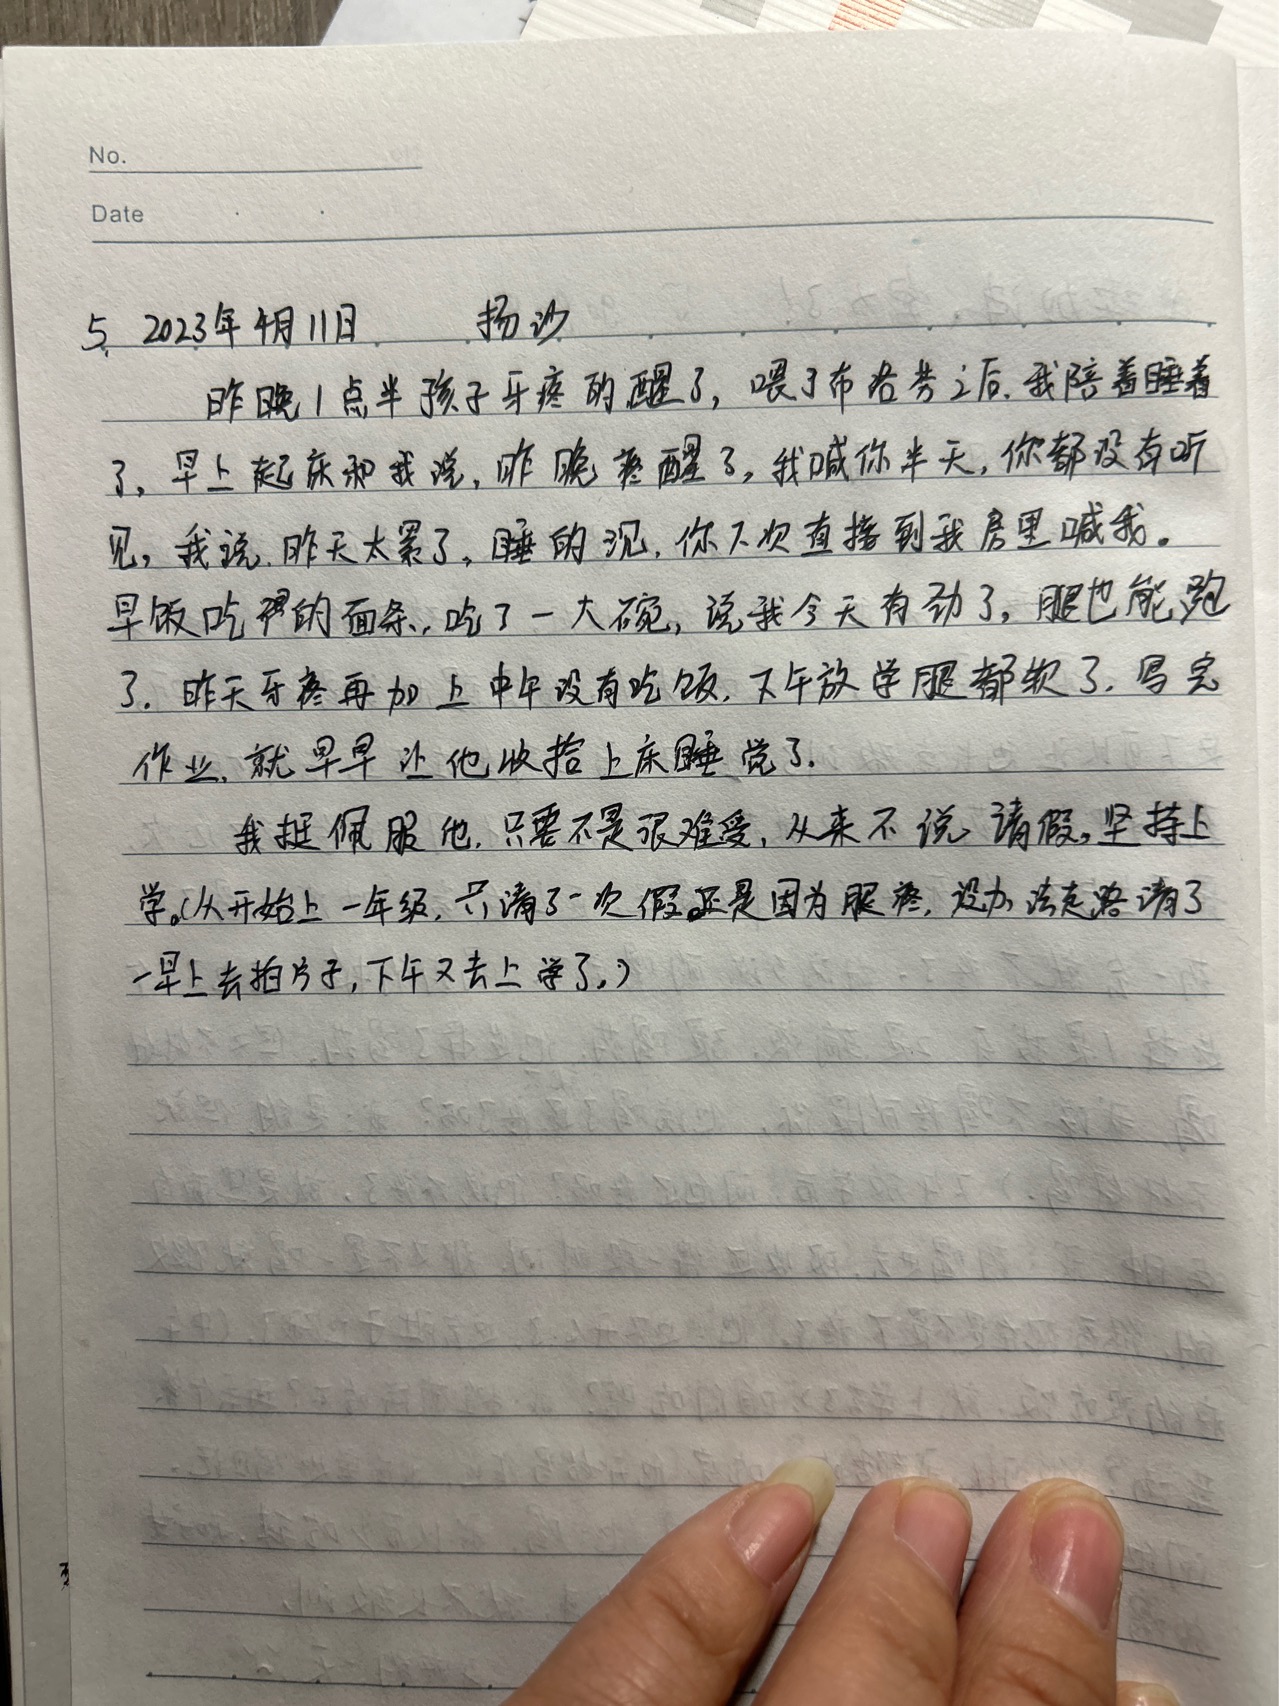 No.
Date
5. 2023年4月11日 扬沙
昨晚1点半孩子牙疼的醒了，喂了布洛芬之后.我陪着睡着
了，早上起床和我说，昨晚疼醒了，我喊你半天，你都没有听
见，我说.昨天太累了，睡的沉，你下次直接到我房里喊我。
早饭吃的面条，吃了一大碗，说我今天有劲了，腿也能跑
了.昨天牙疼再加上中午没有吃饭.下午放学腿都软了.写完
作业.就早早让他收拾上床睡觉了.
我挺佩服他.只要不是很难受，从来不说请假。坚持上
学。(从开始上一年级，只请了一次假还是因为腿疼，没办法走路请了
一早上去拍片子，下午又去上学了。)